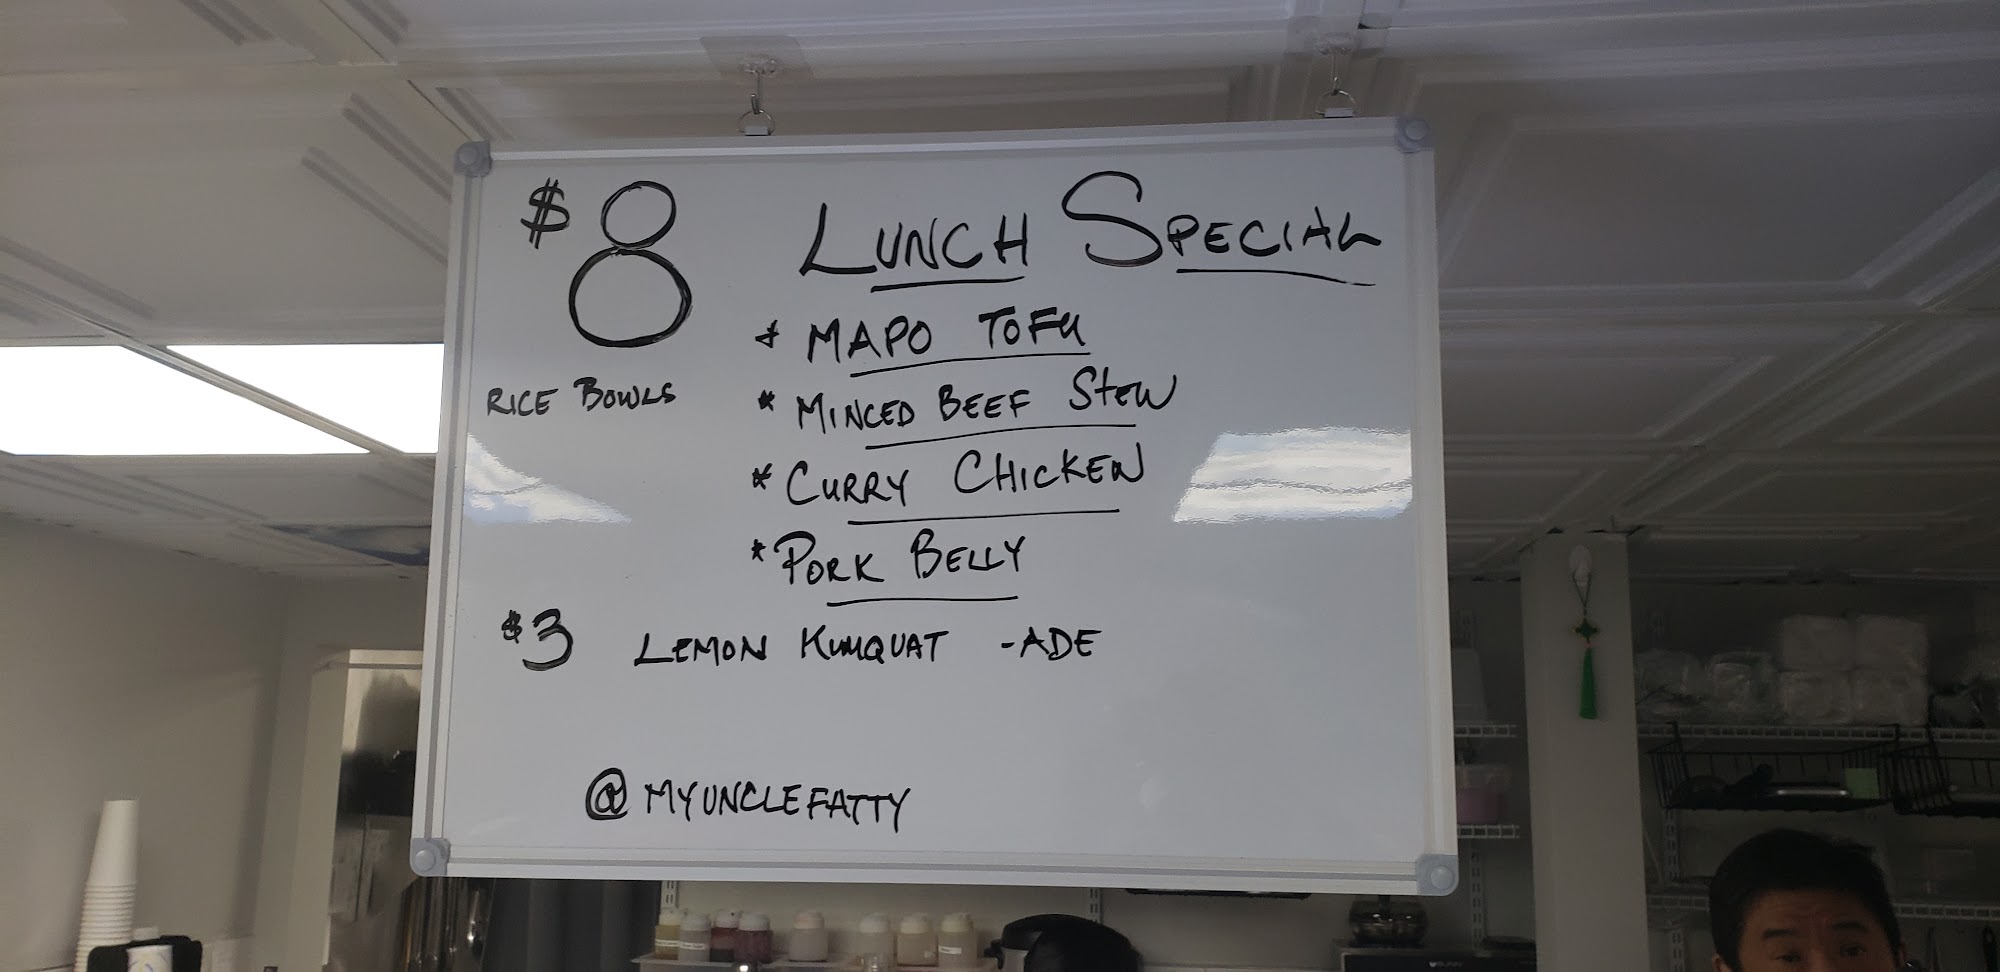 $8 LUNCH SPECIAL
* MAPO TOFU
RICE BOWLS
* MINCED BEEF STEW
* CURRY CHICKEN
* PORK BELLY
$3 LEMON KUMQUAT -ADE
@MYUNCLEFATTY
BUNN